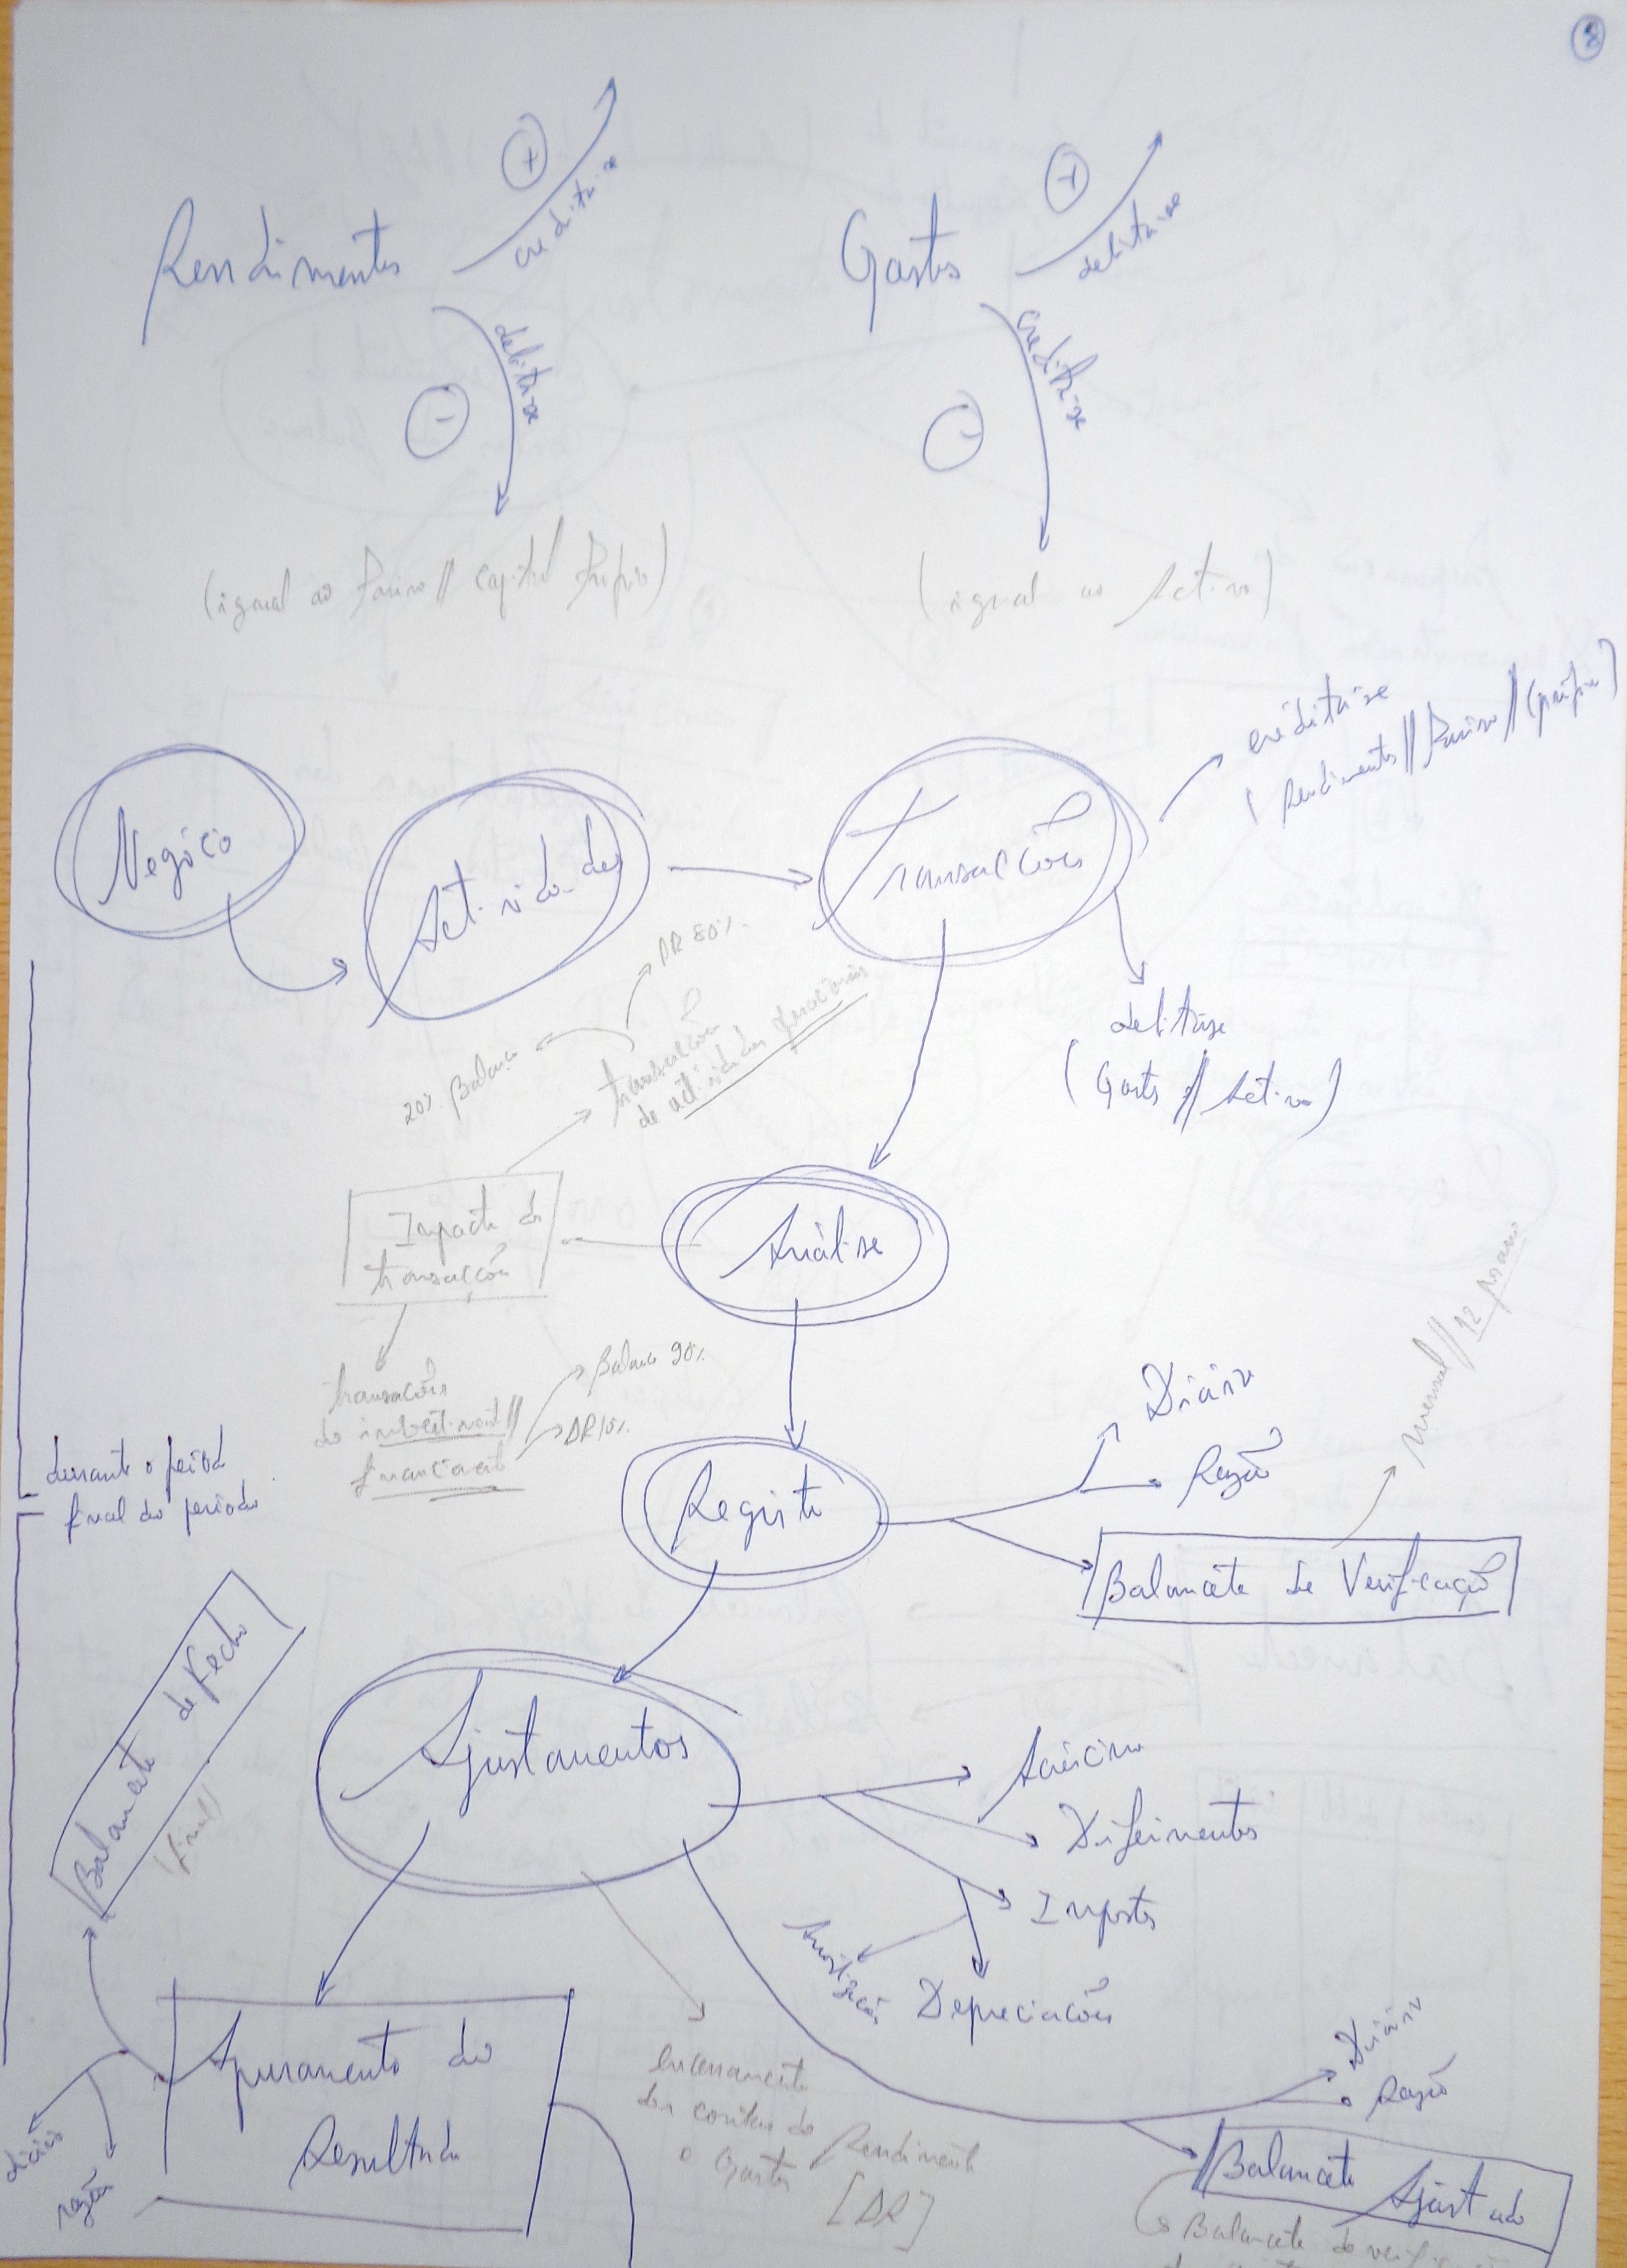 8
+
creditar-se
Rendimentos
debitar-se
-
(igual ao Passivo // Capital Próprio)
+
debitar-se
Gastos
creditar-se
-
(igual ao Activo)
Negócio
Actividades
Transacções
creditar-se
(Rendimentos // Passivo // C. próprio)
debitar-se
(Gastos // Activo)
DR 80%
20% Balanço
transacções
de actividades operacionais
Análise
Impacto da
transacção
transacções
de investimento //
financiamento
Balanço 90%
DR 10%
Registo
Diário
Razão
Balancete de Verificação
mensal // 12 por ano
durante o período
final do período
Ajustamentos
Acréscimo
Diferimentos
Impostos
Depreciações
Amortizações
Balancete de Fecho
(final)
Apuramento do
Resultado
diário
razão
encerramento
das contas de Rendimento
e Gastos
[DR]
Diário
Razão
Balancete Ajustado
Balancete de